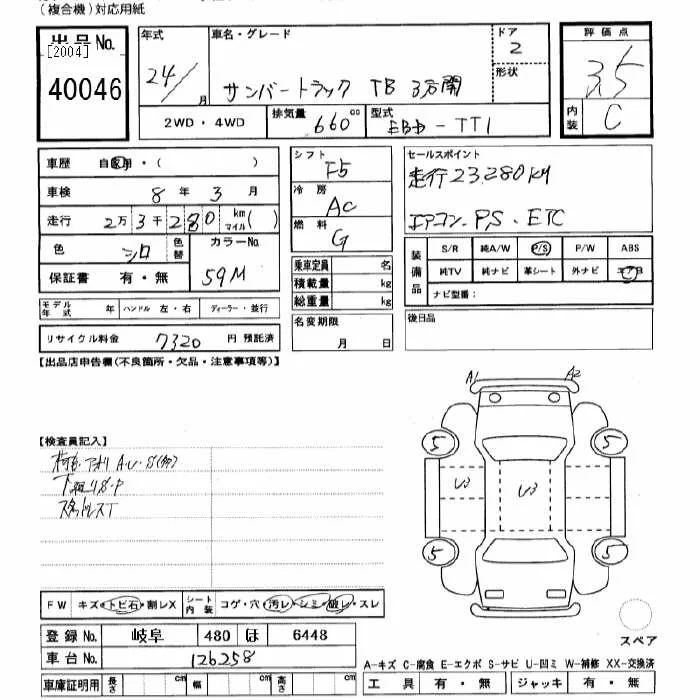 (複合機)対応用紙
出品No. [2004] 40046
年式 24/ 月
車名・グレード サンバートラック TB 3方開
ドア 2
形状
評価点 3.5
内装 C
2WD・4WD
排気量 660 cc
型式 EBD-TT1
車歴 自家用・( )
車検 8 年 3 月
走行 2万3千280 km マイル( )
色 シロ 色替
カラーNo. 59M
保証書 有・無
シフト F5
冷房 AC
燃料 G
乗車定員 名
積載量 kg
総重量 kg
名変期限 月 日
セールスポイント
走行23,280KM
エアコン、PS、ETC
装備品 S/R 純A/W P/S P/W ABS
純TV 純ナビ 革シート 外ナビ エアB
ナビ型番:
後日品
モデル年式 年 ハンドル 左・右 ディーラー・並行
リサイクル料金 7320 円 預託済
【出品店申告欄(不良箇所・欠品・注意事項等)】
A1 A2
【検査員記入】
5 5
U3 U3
5 5
FW キズ・トビ石・割レX シート内装 コゲ・穴・汚レ・シミ・破レ・スレ
登録No. 岐阜 480 ほ 6448
車台No. 126258
スペア
A-キズ C-腐食 E-エクボ S-サビ U-凹ミ W-補修 XX-交換済
車庫証明用 長さ cm 幅 cm 高さ cm
工具 有・無 ジャッキ 有・無